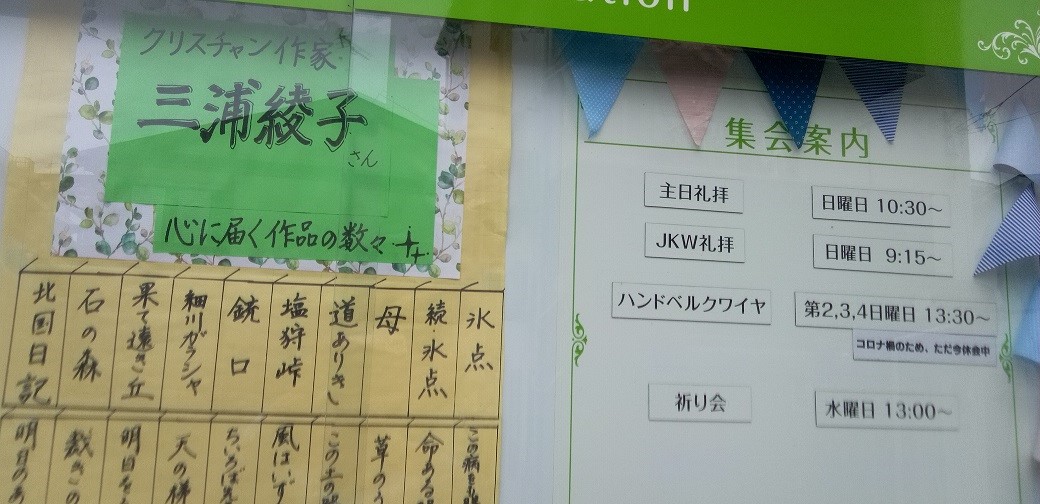 クリスチャン作家
三浦綾子
さん
心に届く作品の数々
氷点
続氷点
母
道ありき
塩狩峠
銃口
細川ガラシャ
果て遠き丘
石の森
北国日記
この病を
命ある
草のう
この土の
風はいず
ちいろば先
天の梯
明日を
裁きの
明日のあ
ation
集会案内
主日礼拝 日曜日 10:30～
JKW礼拝 日曜日 9:15～
ハンドベルクワイヤ 第2,3,4日曜日 13:30～
コロナ禍のため、ただ今休会中
祈り会 水曜日 13:00～